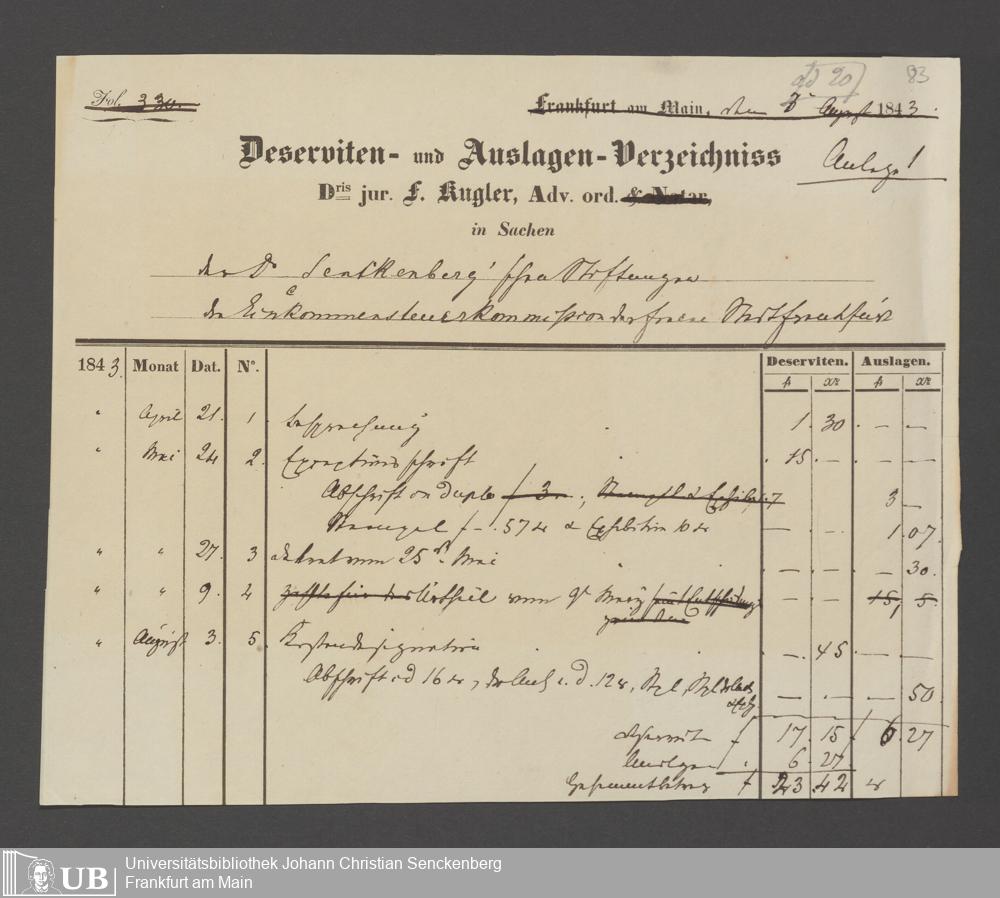 ad 20 83
Fol. 330.
Frankfurt am Main, den 3 August 1843.
Deserviten- und Auslagen-Verzeichniss
Anlage 1
Dris jur. F. Kugler, Adv. ord. & Notar,
in Sachen
der Dr Senckenberg'schen Stiftungen
die Einkommensteuerkommission der freien Stadt Frankfurt
1843. Monat Dat. No. Deserviten. Auslagen.
f xr f xr
" April 21. 1. Besprechung 1. 30 . — —
" Mai 24 2. schrift . 15 . — . — —
Abschrift in Duplo f 3 3 —
Stempel f —. 57 xr & Exhibition 10 xr — . — 1. 07.
" " 27. 3 Dekret vom 25 Mai . — . — . — 30.
" " 9. 4 Urtheil vom 9 — . — 15, 5.
" August 3. 5. Kostendesignation . — . 45 . — . —
Abschrift ad 16 xr, d. 12 xr, — . — — 50.
Deserviten f 17. 15 f 6. 27
Auslagen . 6. 27
Gesammtbetrag f 23. 42 xr
UB
Universitätsbibliothek Johann Christian Senckenberg
Frankfurt am Main